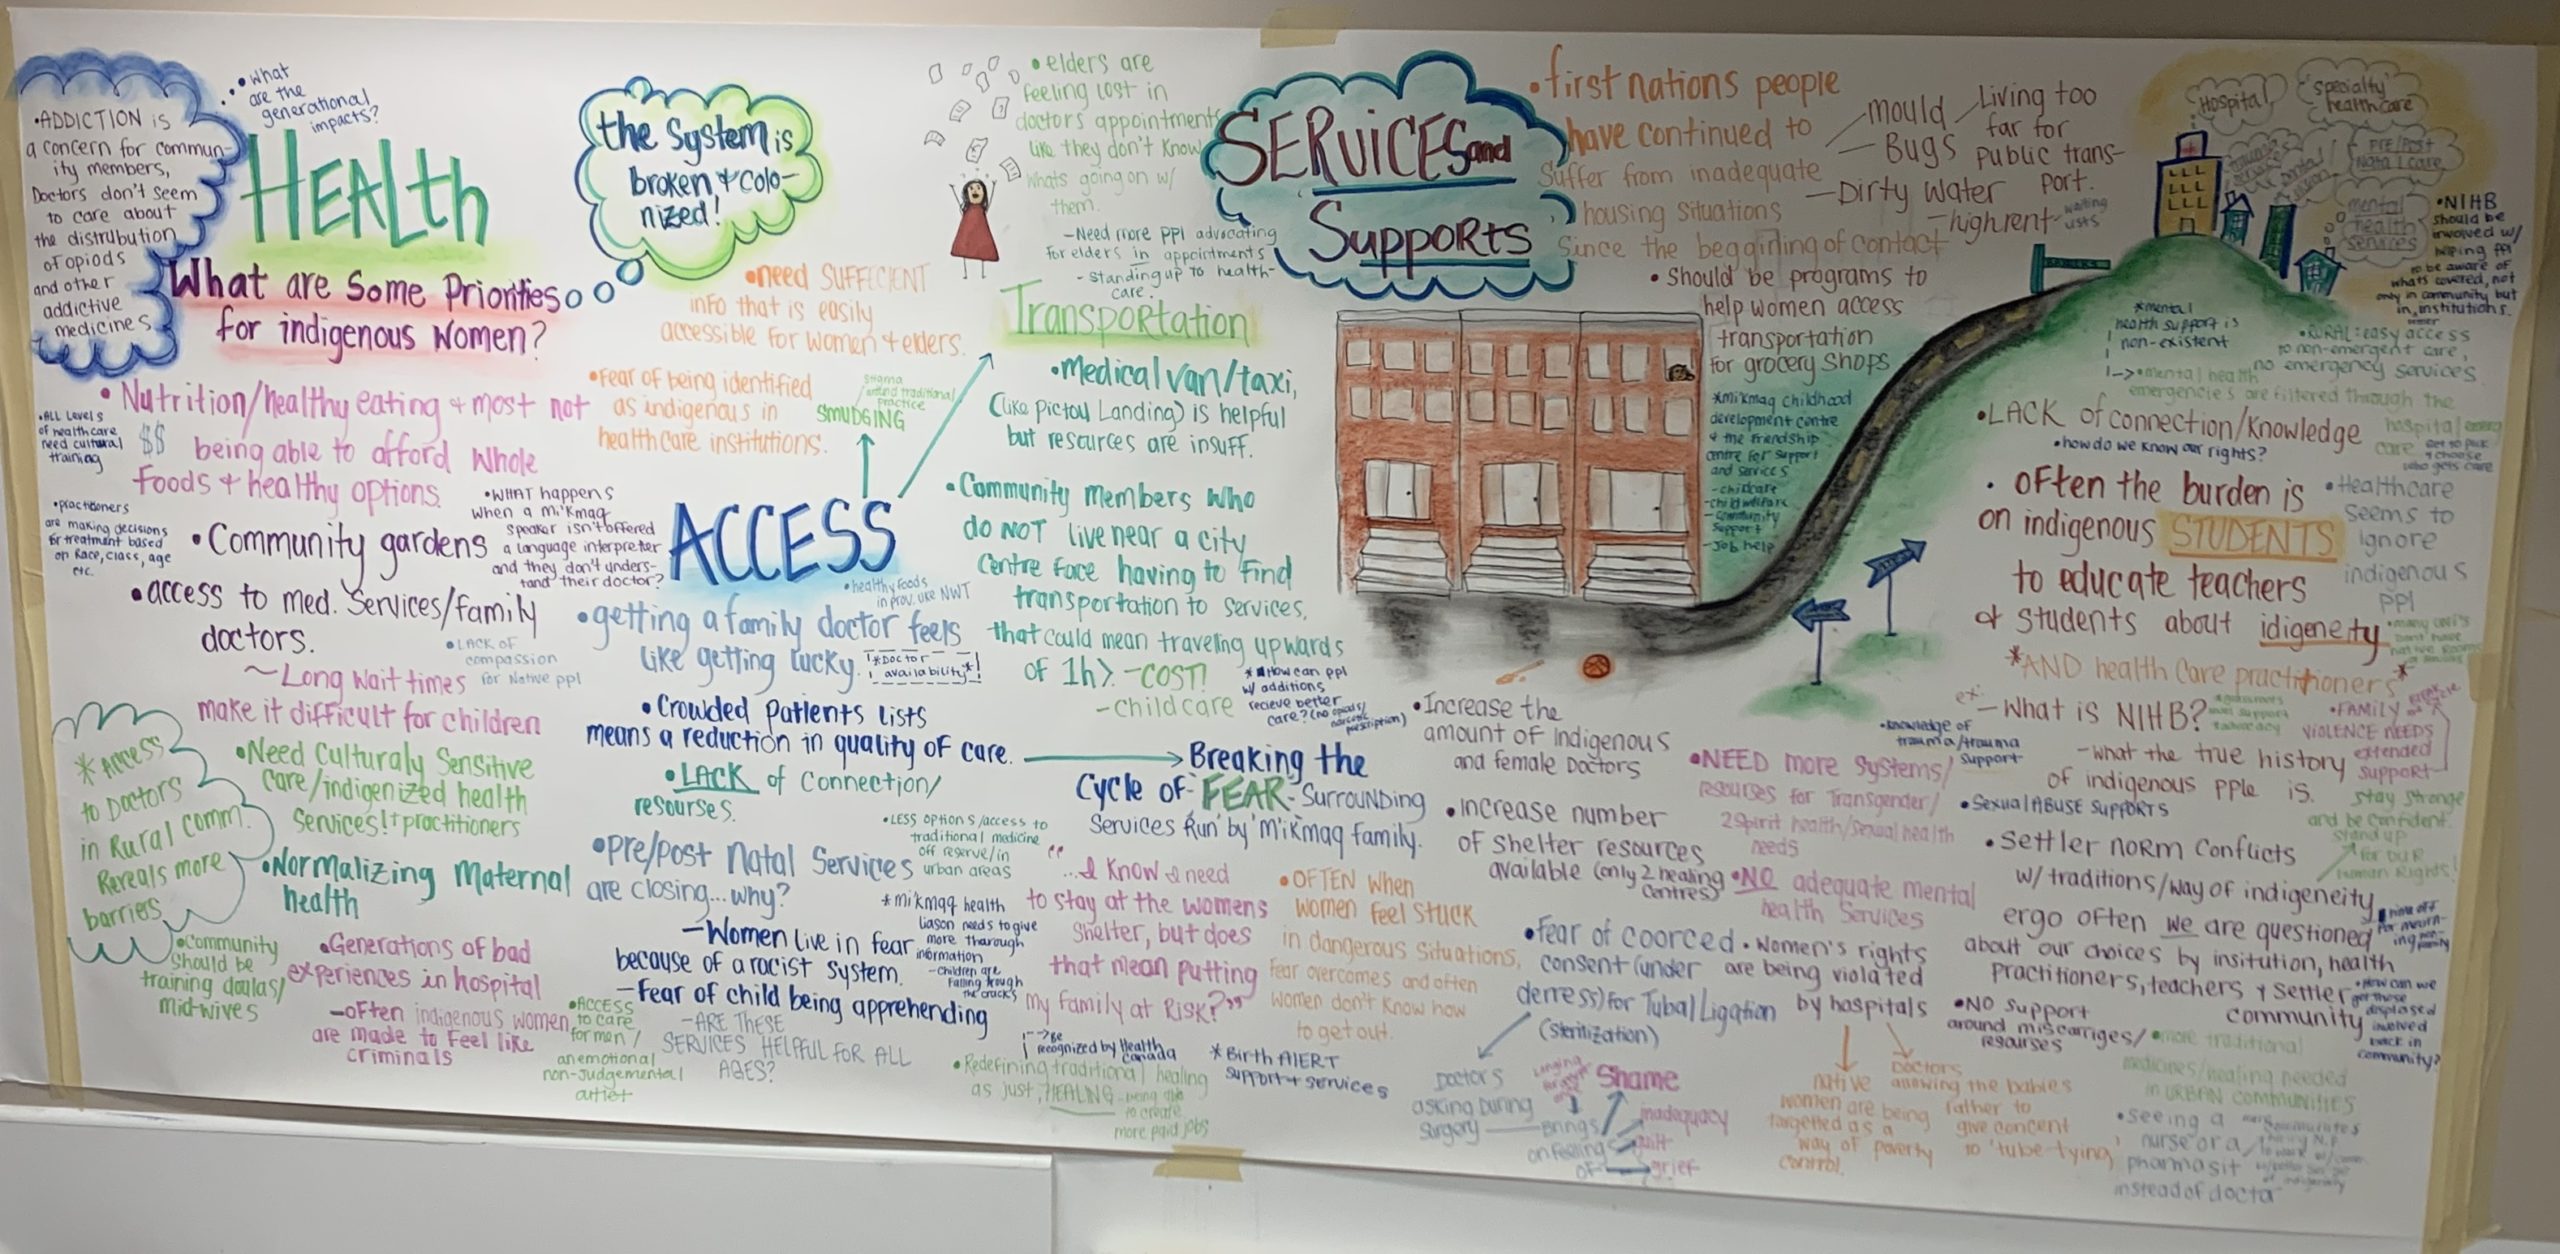 • ADDICTION is
a concern for commun-
ity members,
Doctors don't seem
to care about
the distrubution
of opiods
and other
addictive
medicines
• what
are the
generational
impacts?
HEALTH
What are Some Priorities
for indigenous Women?
the System is
broken + Colo-
nized!
• Nutrition/healthy eating + most not
$$ being able to afford Whole
Foods + healthy options.
• ALL Levels
of healthcare
need cultural
training
• practitioners
are making decisions
for treatment based
on Race, class, age
etc.
• Community gardens
• WHAT happens
when a Mi'kmaq
speaker isn't offered
a language interpreter
and they don't unders-
tand their doctor?
• access to med. Services/family
doctors.
• LACK OF
compassion
for Native ppl
~ Long wait times
make it difficult for children
* Access
to Doctors
in Rural comm.
Reveals more
barriers
• Need Culturaly Sensitive
care/indigenized health
Services! + practitioners
• Normalizing Maternal
health
• Community
should be
training doulas/
mid-wives
• Generations of bad
experiences in hospital
- often indigenous women
are made to feel like
criminals
• ACCESS
to care
for men/
an emotional
non-judgemental
outlet
• need SUFFECIENT
info that is easily
accessible for women + elders.
• fear of being identified
as indigenous in
healthcare institutions.
stigma
around traditional
practice
SMUDGING
ACCESS
• healthy foods
in prov. like NWT
• getting a family doctor feels
like getting lucky.
*Doctor
availability*
• Crowded Patients lists
means a reduction in quality of care.
• LACK of Connection/
resourses.
• LESS options/access to
traditional medicine
off reserve/in
urban areas
• Pre/post Natal Services
are closing... why?
* mi'kmaq health
liason needs to give
more thorough
information
- children are
falling trough
the cracks
- Women live in fear
because of a racist system.
- fear of child being apprehending
- ARE THESE
SERVICES HELPFUL FOR ALL
AGES?
• elders are
feeling lost in
doctors appointments
like they don't know
whats going on w/
them.
- Need more ppl advocating
for elders in appointments
- standing up to health-
care.
Transportation
• Medical van/taxi,
(like Pictou Landing) is helpful
but resources are insuff.
• Community members who
do NOT live near a city
centre face having to find
transportation to services,
that could mean traveling upwards
of 1h> - COST!
- childcare
* How can ppl
w/ additions
recieve better
care? (no opiods/
narcotic
prescription)
Breaking the
Cycle of FEAR - Surrounding
Services Run by Mi'kmaq family.
"...I know I need
to stay at the womens
shelter, but does
that mean putting
my family at Risk?"
• OFTEN when
women feel stuck
in dangerous situations,
fear overcomes and often
women don't know how
to get out.
-> Be
recognized by Health
Canada
• Redefining traditional healing
as just, HEALING - being able
to create
more paid jobs
* Birth AlERT
support + services
SERViCES and
SUPPORTS
• first nations people
have continued to
suffer from inadequate
housing situations
since the beggining of contact
- mould
- Bugs
- Dirty Water
- high rent
- waiting
lists
- Living too
far for
public trans-
port.
• Should be programs to
help women access
transportation
for grocery shops
* mi'kmaq childhood
development centre
+ the friendship
centre for support
and services
- childcare
- child welfare
- community
support
- Job help
Hospital
'specialty'
healthcare
PRE/POST
Natal care
mental
health
services
• NIHB
should be
involved w/
helping ppl
to be aware of
whats covered, not
only in community but
in institutions.
* mental
health support is
non-existent
-> • mental health
emergencies are filtered through the
hospital
• RURAL: easy access
to non-emergent care,
no emergency services
• LACK of connection/knowledge
• how do we know our rights?
get to pick
+ choose
who gets care
• often the burden is
on indigenous STUDENTS
to educate teachers
+ students about idigeneity
*AND health care practitioners*
• Healthcare
seems to
ignore
indigenous
ppl
ex: - What is NIHB?
- what the true history
of indigenous pple is.
• FAMILY
VIOLENCE NEEDS
extended
support
stay strong
and be confident.
stand up
for OUR
Human Rights!
• Increase the
amount of Indigenous
and female Doctors
• increase number
of shelter resources
available (only 2 healing
centres)
• knowledge of
trauma/trauma
support
• NEED more systems/
resourses for Transgender/
2Spirit health/sexual health
needs
• Sexual ABUSE SUPPORTS
• NO adequate mental
health services
• Settler norm conflicts
w/ traditions/way of indigeneity
ergo often we are questioned
about our choices by insitution, health
practitioners, teachers + settler
community
• how can we
get those
displaced
involved
back in
community?
• fear of coorced
consent (under
deress) for Tubal Ligation
(sterilization)
• women's rights
are being violated
by hospitals
• NO support
around miscarriges/
resourses
Doctors
asking during
surgery
Brings
on feelings
of
Shame
inadequacy
guilt
grief
native
women are being
targetted as a
way of poverty
control.
Doctors
allowing the babies
father to
give concent
to 'tube-tying'
• more traditional
medicines/healing needed
in URBAN COMMUNITIES
• seeing a
nurse or a
pharmasit
instead of docta